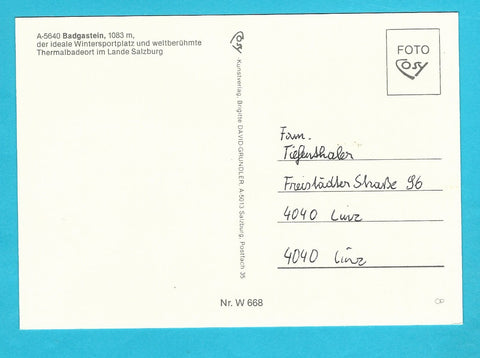 A-5640 Badgastein, 1083 m,
der ideale Wintersportplatz und weltberühmte
Thermalbadeort im Lande Salzburg
Cosy - Kunstverlag, Brigitte DAVID-GRÜNDLER, A-5013 Salzburg, Postfach 35
FOTO
Cosy
Fam.
Tiefenthaler
Freistädter Straße 96
4040 Linz
4040 Linz
Nr. W 668
OP